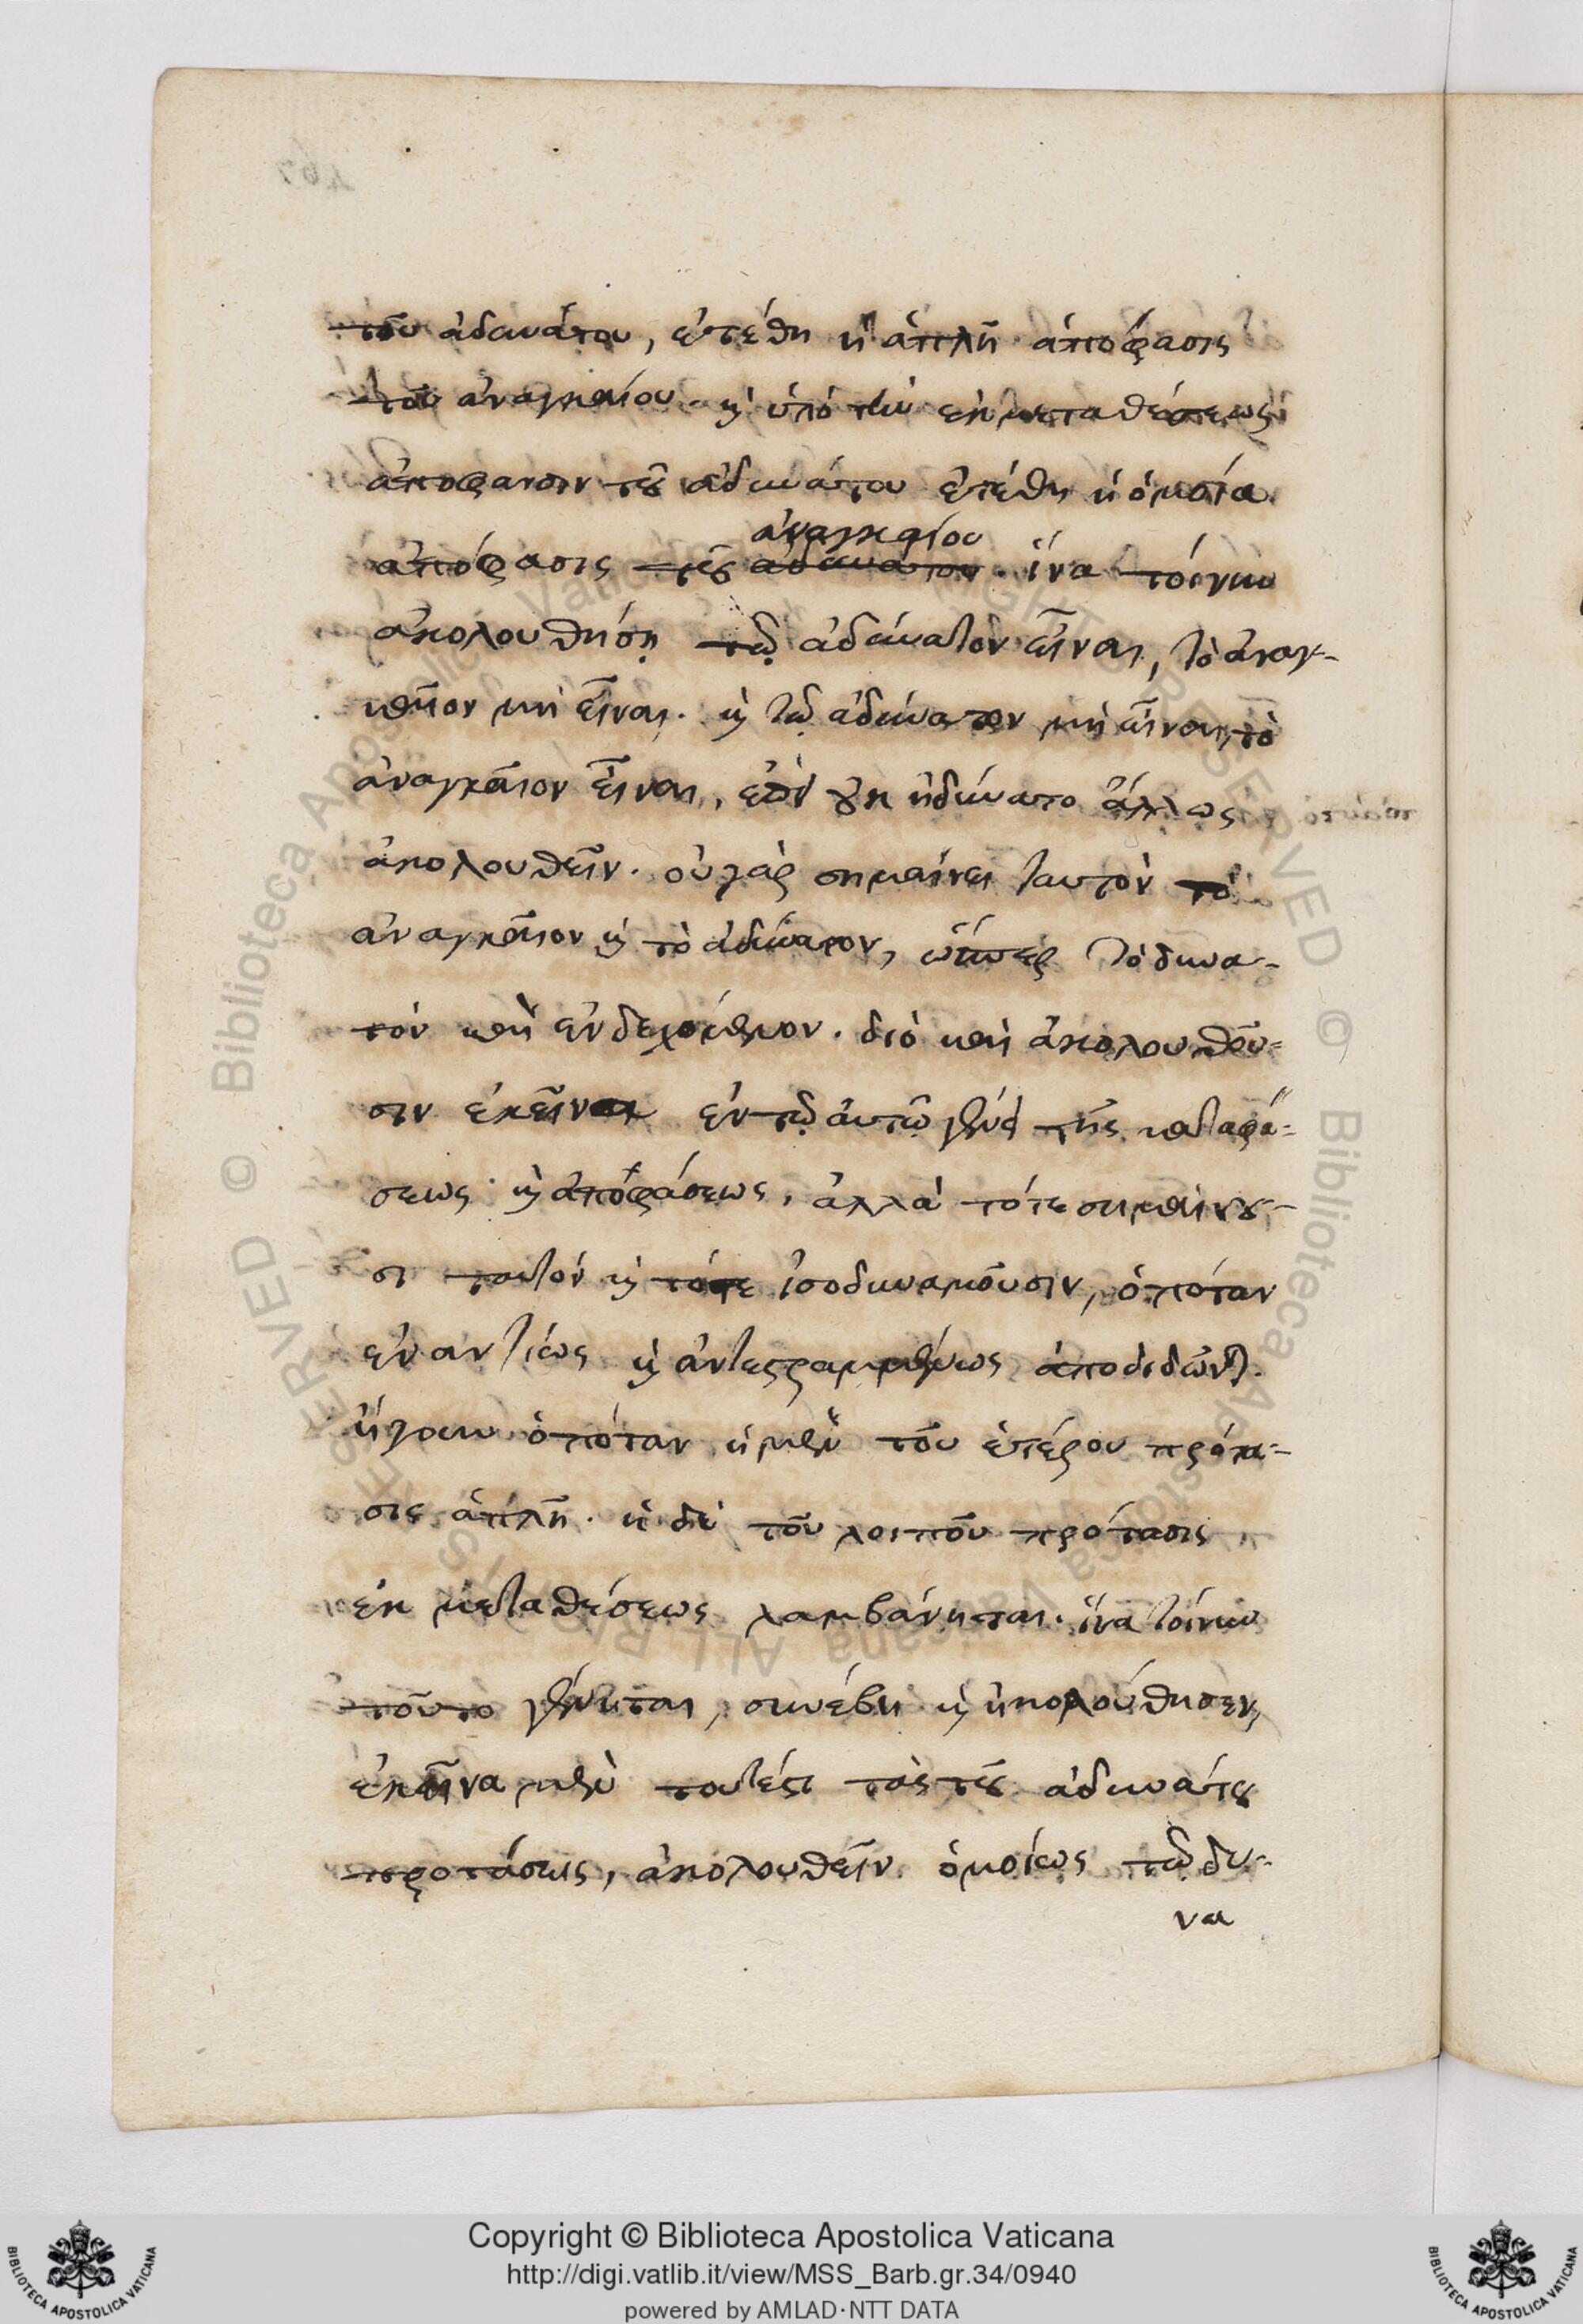 τοῦ ἀδυνάτου, ἐτέθη ἡ ἁπλῆ ἀπόφασις
τοῦ ἀναγκαίου. καὶ ὑπὸ τὴν ἐκ μεταθέσεως
ἀπόφανσιν τοῦ ἀδυνάτου ἐτέθη ἡ ὁμοία
ἀναγκαίου
ἀπόφασις τοῦ ἀδυνάτου. ἵνα τοίνυν
ἀκολουθήσῃ τῷ ἀδύνατον εἶναι, τὸ ἀναγ-
καῖον μὴ εἶναι. καὶ τῷ ἀδύνατον μὴ εἶναι, τὸ
ἀναγκαῖον εἶναι, οὐκ ἠδύνατο ἄλλως
ἀκολουθεῖν. οὐ γὰρ σημαίνει ταυτὸν τὸ
ἀναγκαῖον καὶ τὸ ἀδύνατον, ὥσπερ τὸ δυνα-
τὸν καὶ ἐνδεχόμενον. διὸ καὶ ἀκολουθοῦ-
σιν ἐκεῖνα ἐν τῷ αὐτῷ γένει τῆς καταφά-
σεως καὶ ἀποφάσεως, ἀλλὰ τότε σημαίνου-
σι ταυτὸν καὶ τότε ἰσοδυναμοῦσιν, ὁπόταν
ἐναντίως καὶ ἀντεστραμμένως ἀποδιδῶνται.
ἤγουν ὁπόταν ἡ μὲν τοῦ ἑτέρου πρότα-
σις ἁπλῆ. ἡ δὲ τοῦ λοιποῦ πρότασις
ἐκ μεταθέσεως λαμβάνηται. ἵνα τοίνυν
τοῦτο γένηται, συνέβη καὶ ἠκολούθησεν,
ἐκεῖνα μὲν τουτέστι τὰς τοῦ ἀδυνάτου
προτάσεις, ἀκολουθεῖν ὁμοίως τῷ δυ-
να
Copyright © Biblioteca Apostolica Vaticana
http://digi.vatlib.it/view/MSS_Barb.gr.34/0940
powered by AMLAD·NTT DATA